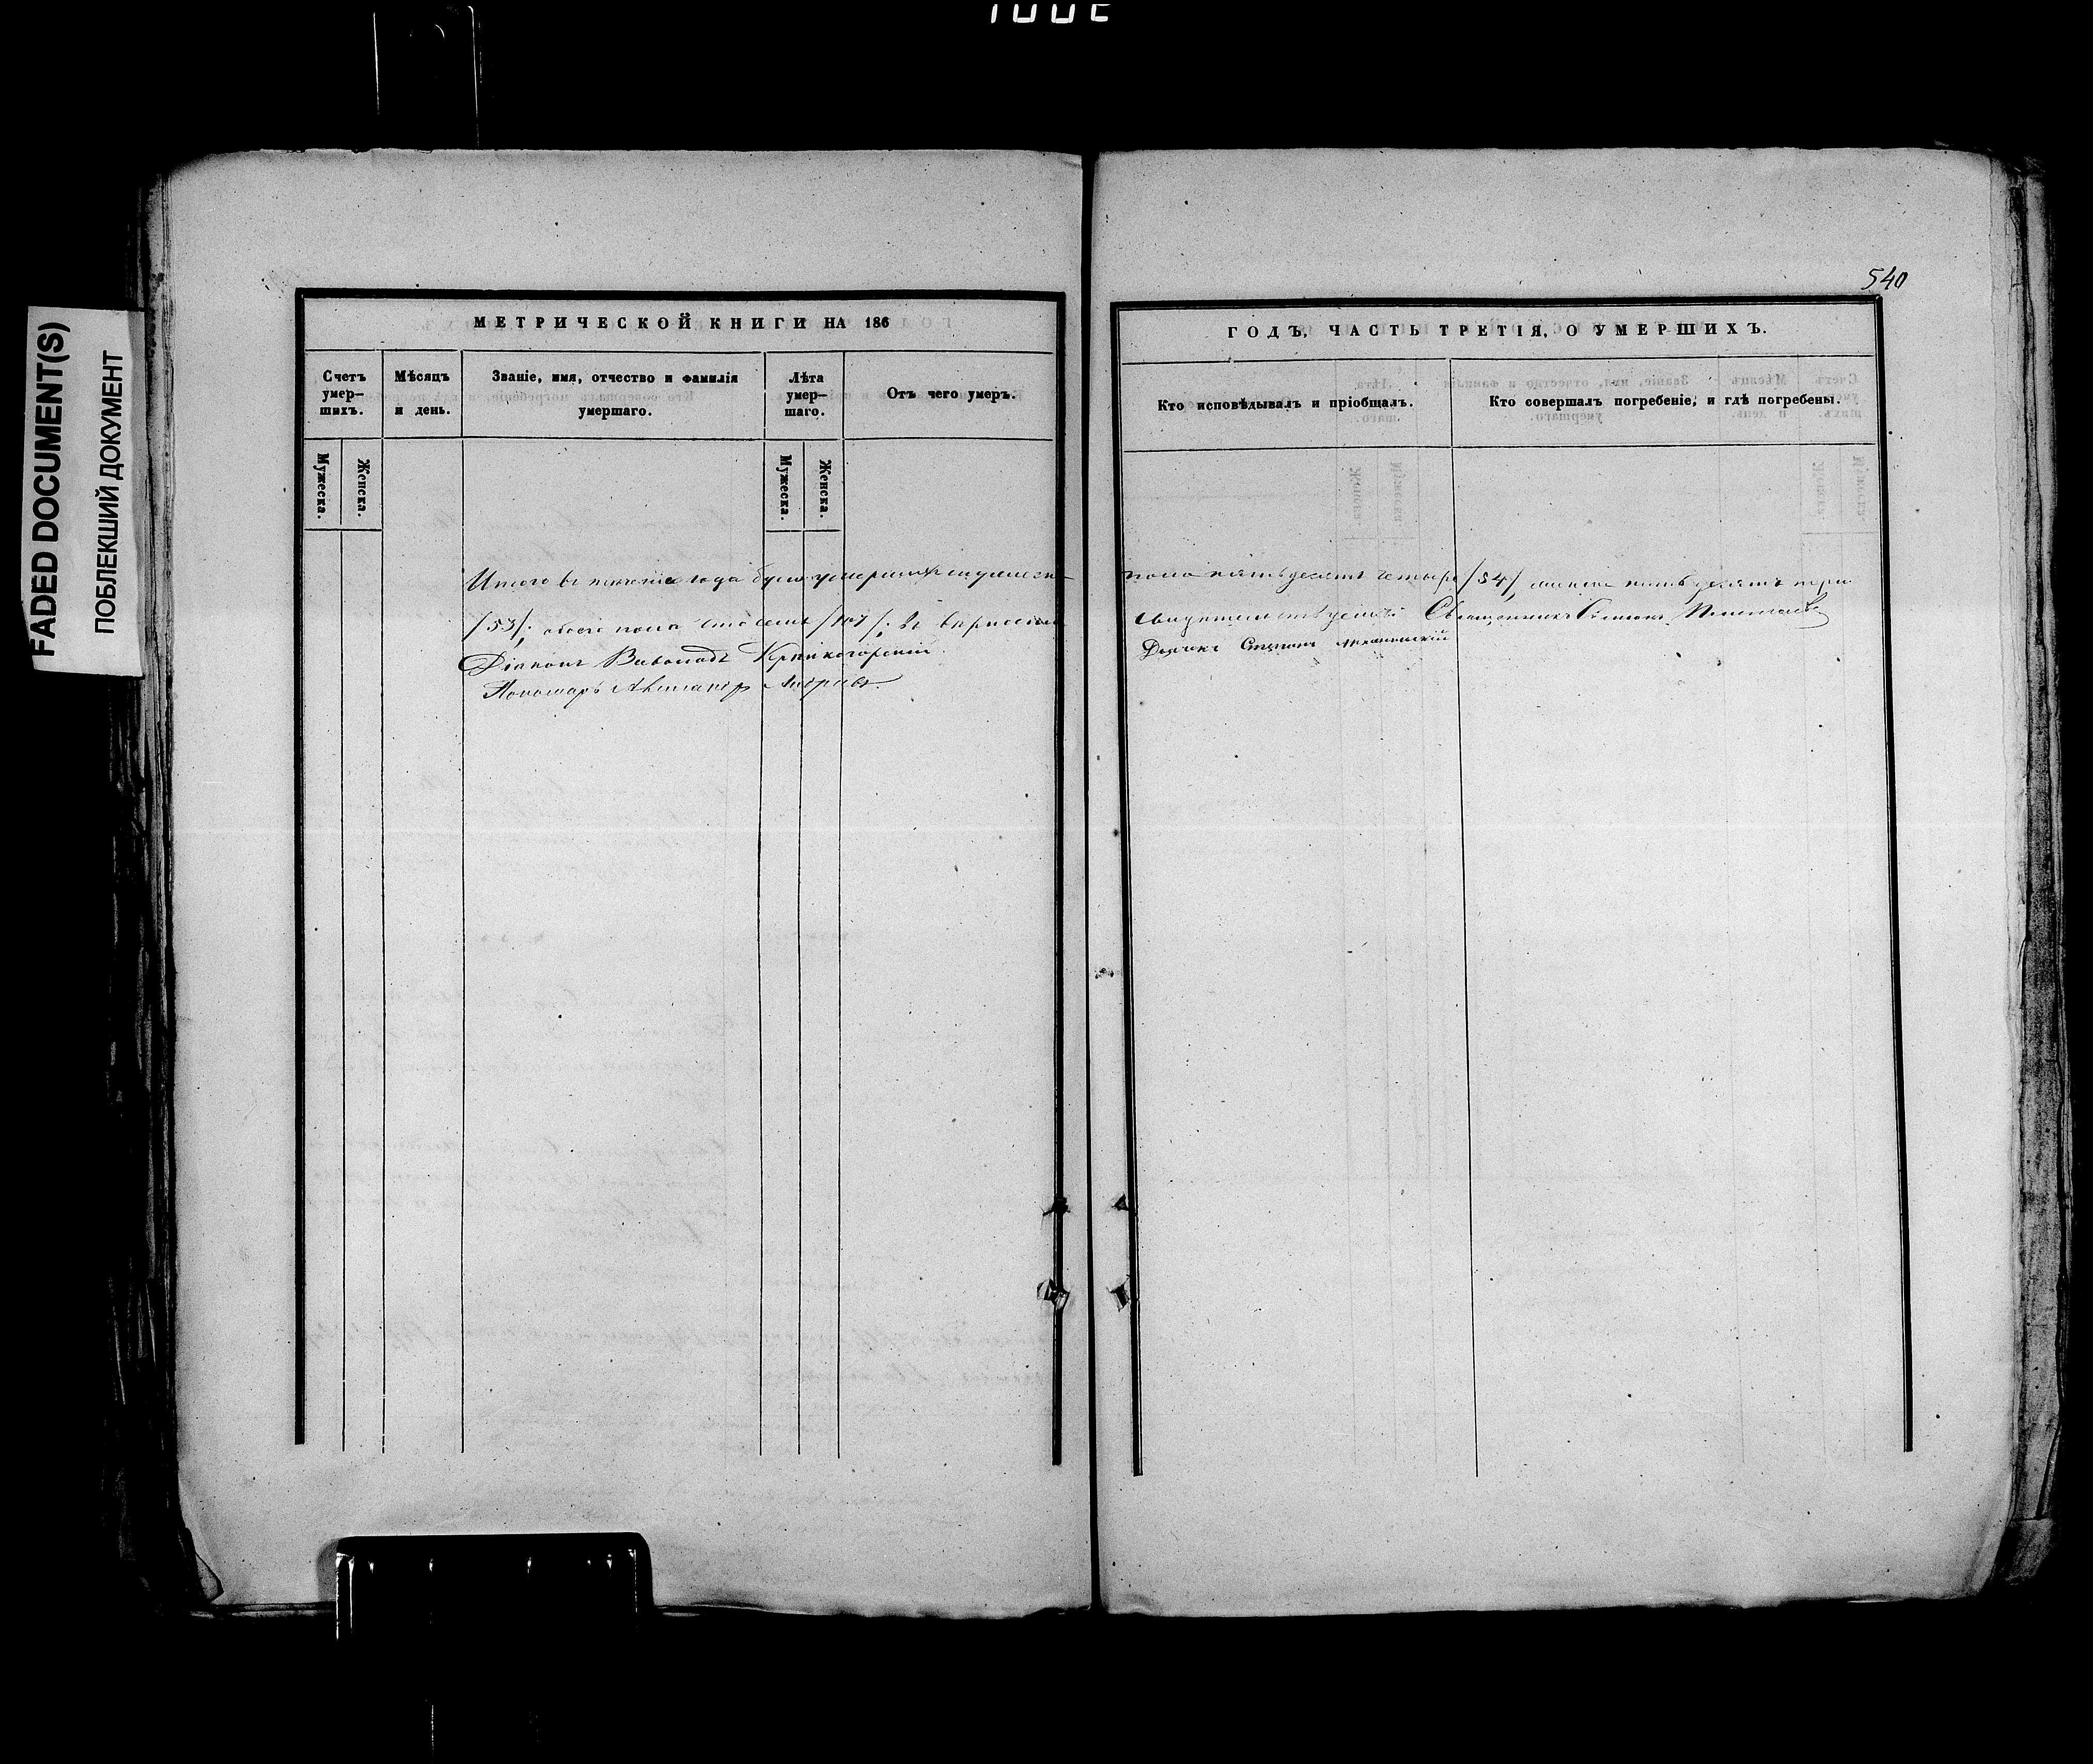 FADED DOCUMENT(S)
ПОБЛЕКШИЙ ДОКУМЕНТ
540
МЕТРИЧЕСКОЙ КНИГИ НА 186
ГОДЪ, ЧАСТЬ ТРЕТІЯ, О УМЕРШИХЪ.
Счетъ умер-шихъ.
Мужеска.
Женска.
Мѣсяцъ и день.
Званіе, имя, отчество и фамилія умершаго.
Лѣта умер-шаго.
Мужеска.
Женска.
Отъ чего умеръ.
Кто исповѣдывалъ и пріобщалъ.
Кто совершалъ погребеніе, и гдѣ погребены.
Итого въ теченіе года было умершихъ мужеска
пола пятьдесятъ четыре /54/, женска пятьдесятъ три
/53/; обоего пола сто семь /107/; въ
свидетельствуемъ: Священникъ
Діаконъ
Дьячекъ Стефанъ
Пономарь Александръ